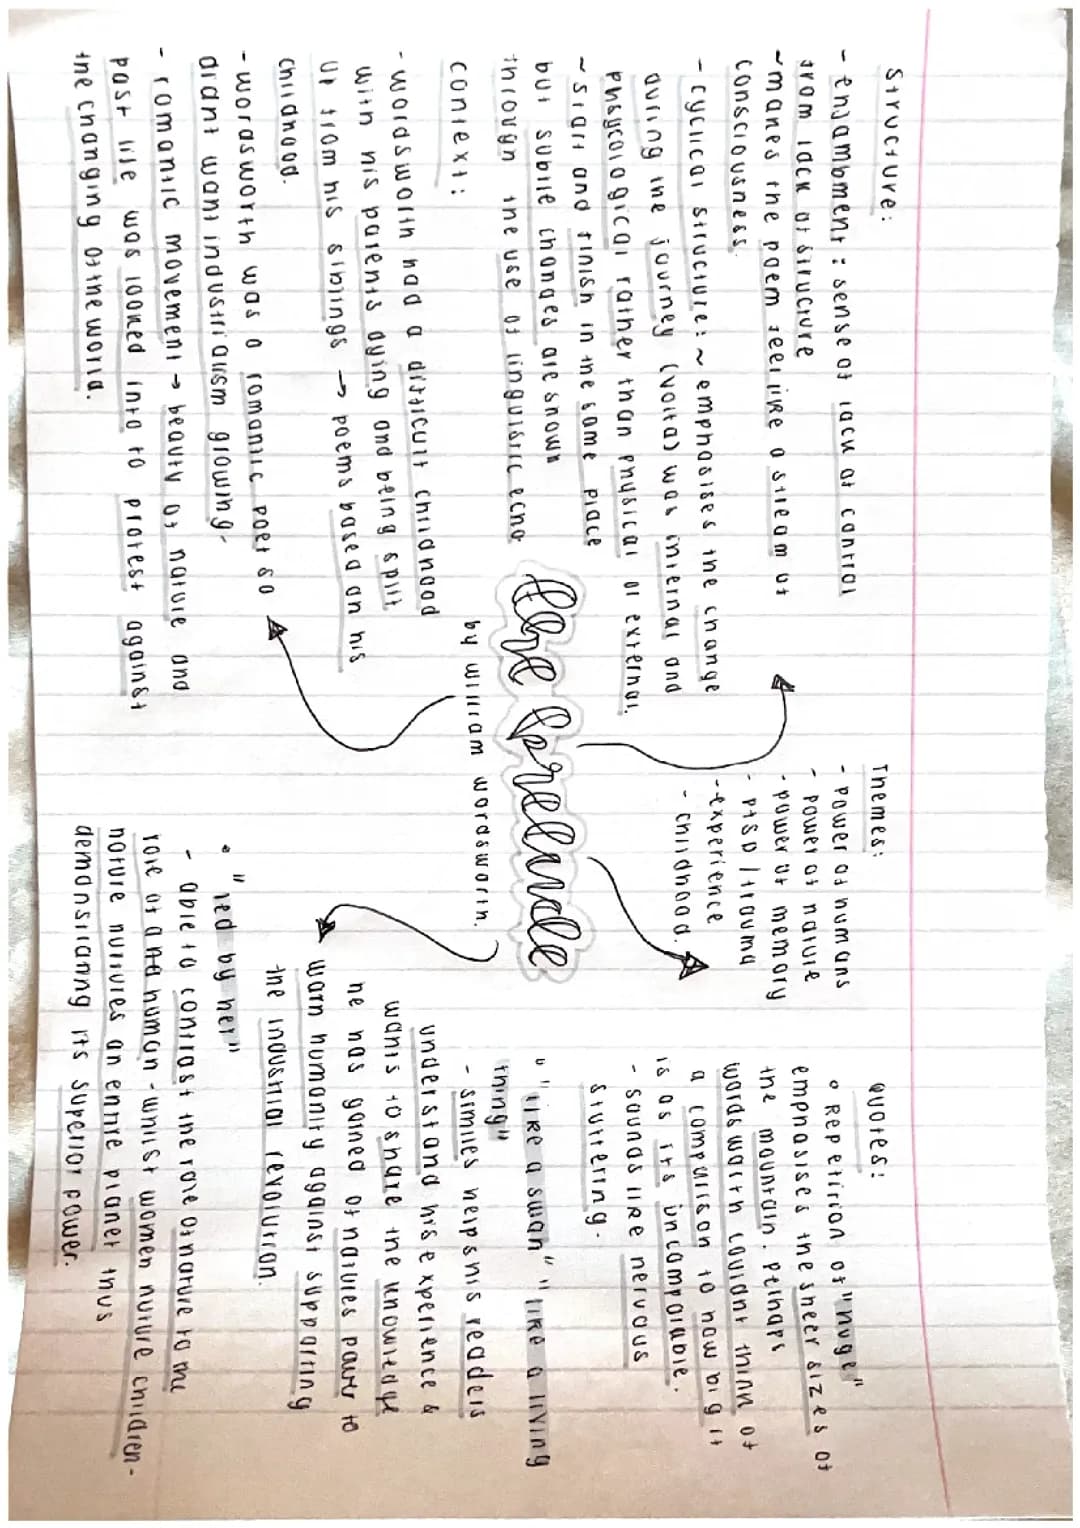 Structure:
- enjambment: sense of lack of control
from lack of structure
~ makes the poem feel like a stream of
consciousness.
- cyclical structure: ~ emphasises the change
during the journey (volta) was internal and
phsycological rather than physical or external.
~ start and finish in the same place
but subtle changes are shown
through the use of linguistic echo
context:
- wordsworth had a difficult childhood
with his parents dying and being split
up from his siblings → poems based on his
childhood.
- wordsworth was a romantic poet so
didnt want industrialism growing.
- romantic movement → beauty of nature and
past life was looked into to protest against
the changing of the world.
The Prelude
by william wordsworth.
Themes:
- power of humans
- power of nature
- power of memory
- PTSD / trauma
- experience
- childhood.
quotes:
° Repetition of "huge"
emphasises the sheer sizes of
the mountain. Perhaps
wordsworth couldnt think of
a comparison to how big it
is as its uncomparable.
- sounds like nervous
stuttering.
" "like a swan" "like a living
thing"
- similes helps his readers
understand his experience &
wants to share the knowledge
he has gained of natures power to
warn humanity against supporting
the industrial revolution.
• "led by her"
- able to contrast the role of nature to the
role of a human - whilst women nuture children -
nature nutures an entire planet thus
demonstrating its superior power.